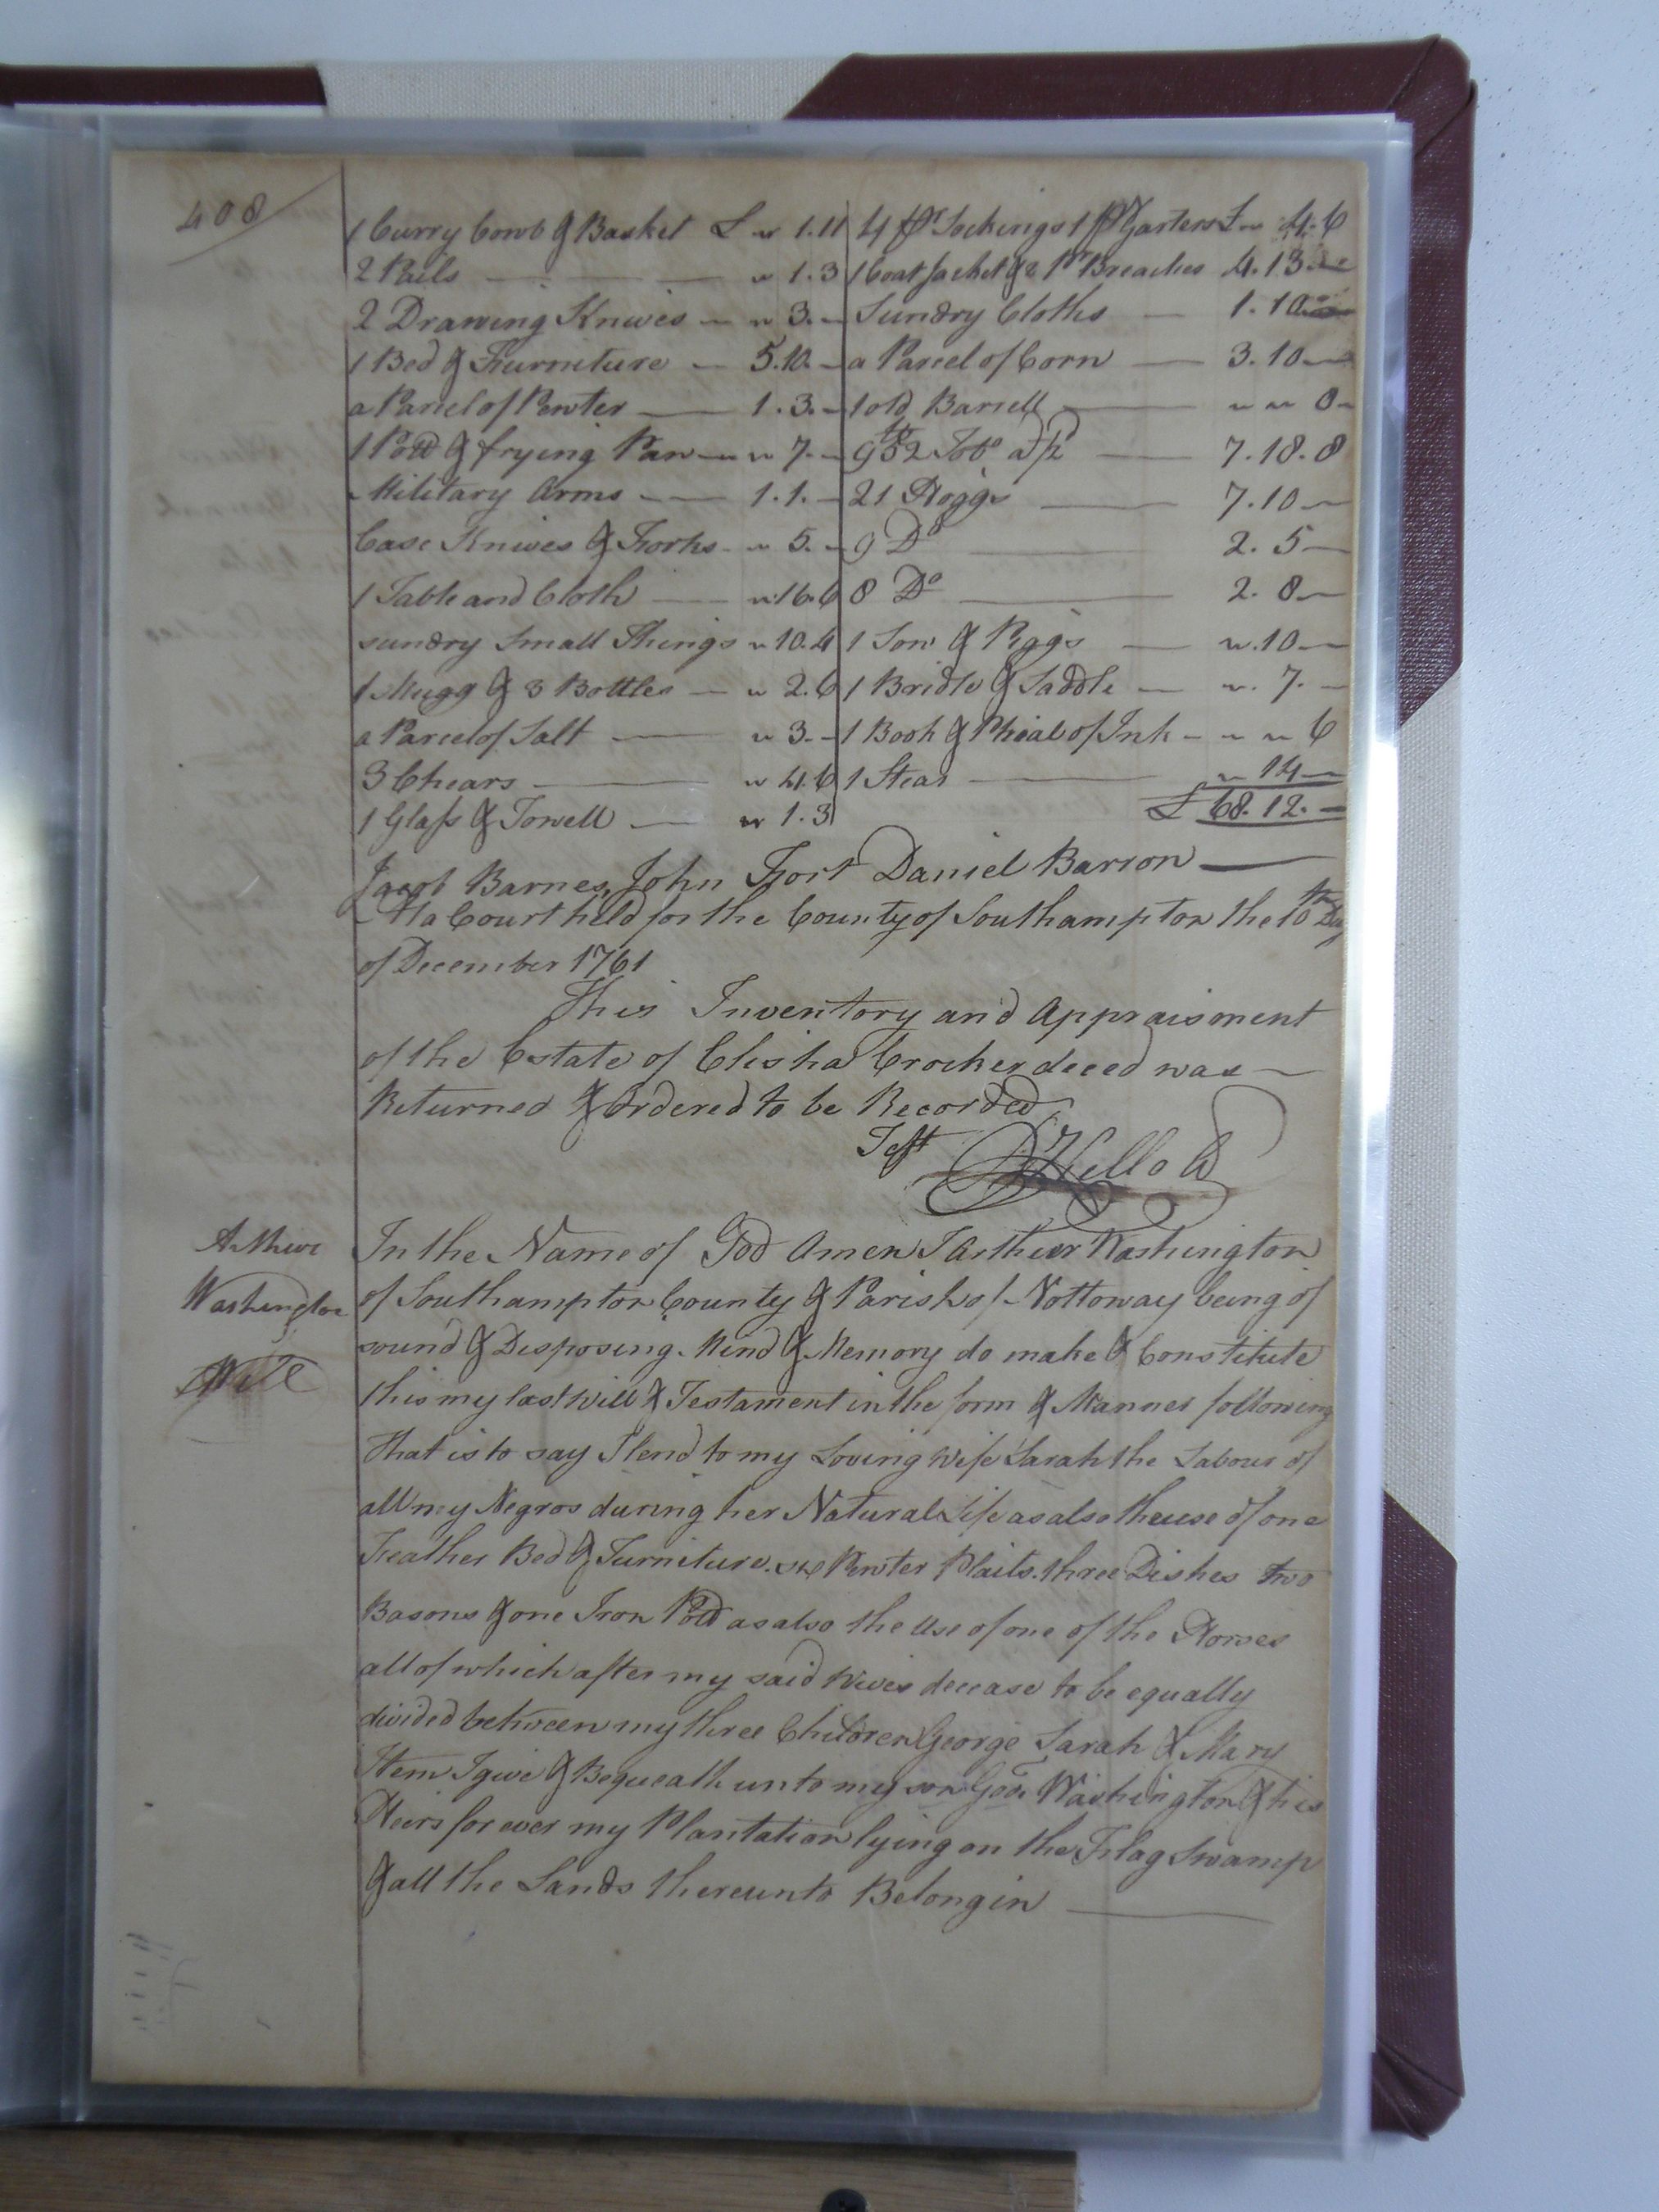 408
1 Curry Comb & Basket £ " 1.11
2 Pails " 1.3
2 Drawing Knives " 3.-
1 Bed & Furniture 5.10.-
a Parcel of Pewter 1.3.-
1 Pott & frying Pan " 7.-
Military Arms 1.1.-
Case Knives & Forks " 5.-
1 Table and Cloth " 16.6
sundry Small Things " 10.4
1 Mugg & 3 Bottles " 2.6
a Parcel of Salt " 3.-
3 Chears " 4.6
1 Glass & Towell " 1.3
4 pr Stockings 1 pr Garters £ " 4.6
1 Coat Jacket & 2 Pr Breaches 4.13
Sundry Cloths 1.10
a Parcel of Corn 3.10
1 old Barrell " " 8
952 Tobo 7.18.8
21 Hoggs 7.10
9 Do 2.5
8 Do 2.8
1 Sow & Piggs " 10
1 Bridle & Saddle " 7.-
1 Book & Phial of Ink " " 6
1 Stear " 14
£ 68.12.-
Jacob Barnes, John Fort Daniel Barron
At a Court held for the County of Southampton the 10th Day
of December 1761
This Inventory and Appraisment
of the Estate of Elisha Crocker deced was
Returned & Ordered to be Recorded
Test
Arthur
Washington
Will
In the Name of God Amen I Arthur Washington
of Southampton County & Parish of Nottoway being of
sound & Disposing Mind & Memory do make & Constitute
this my last Will & Testament in the form & Manner following
that is to say I lend to my Loving Wife Sarah the Labour of
all my Negros during her Natural Life as also the use of one
Feather Bed & Furniture six Pewter Plaits three Dishes two
Basons & one Iron Pott as also the Use of one of the Horses
all of which after my said Wives decease to be equally
divided between my three Children George Sarah & Mary
Item I give & Bequeath unto my son Geo. Washington & his
Heirs for ever my Plantation lying on the Flag Swamp
& all the Lands thereunto Belongin